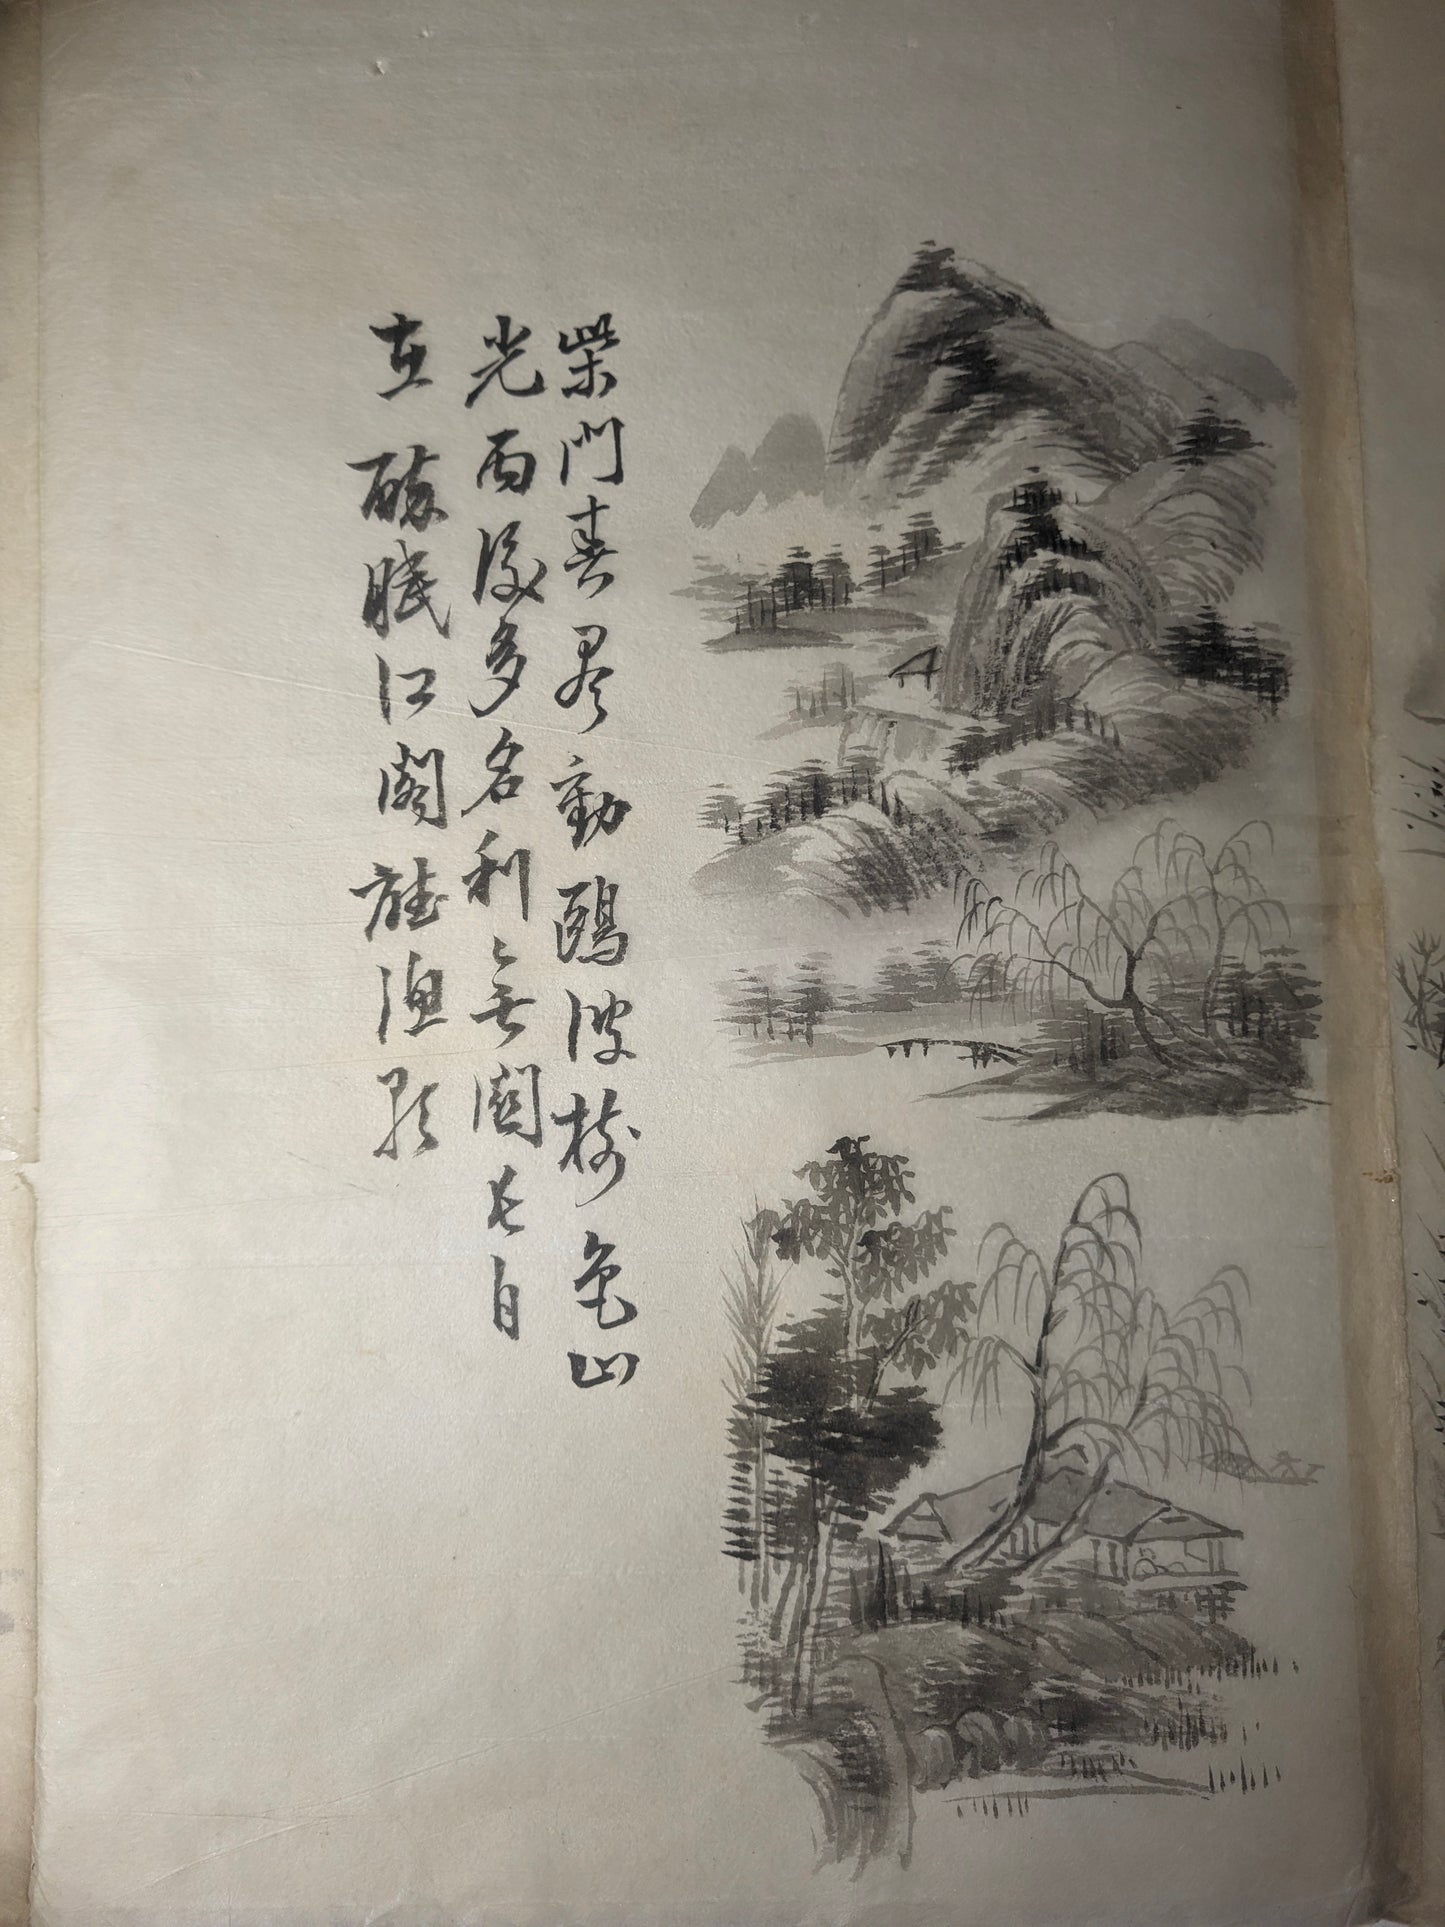 柴門春尽動鷗波樹色山
光雨後多名利無關長自
在醉眠江閣聽漁歌